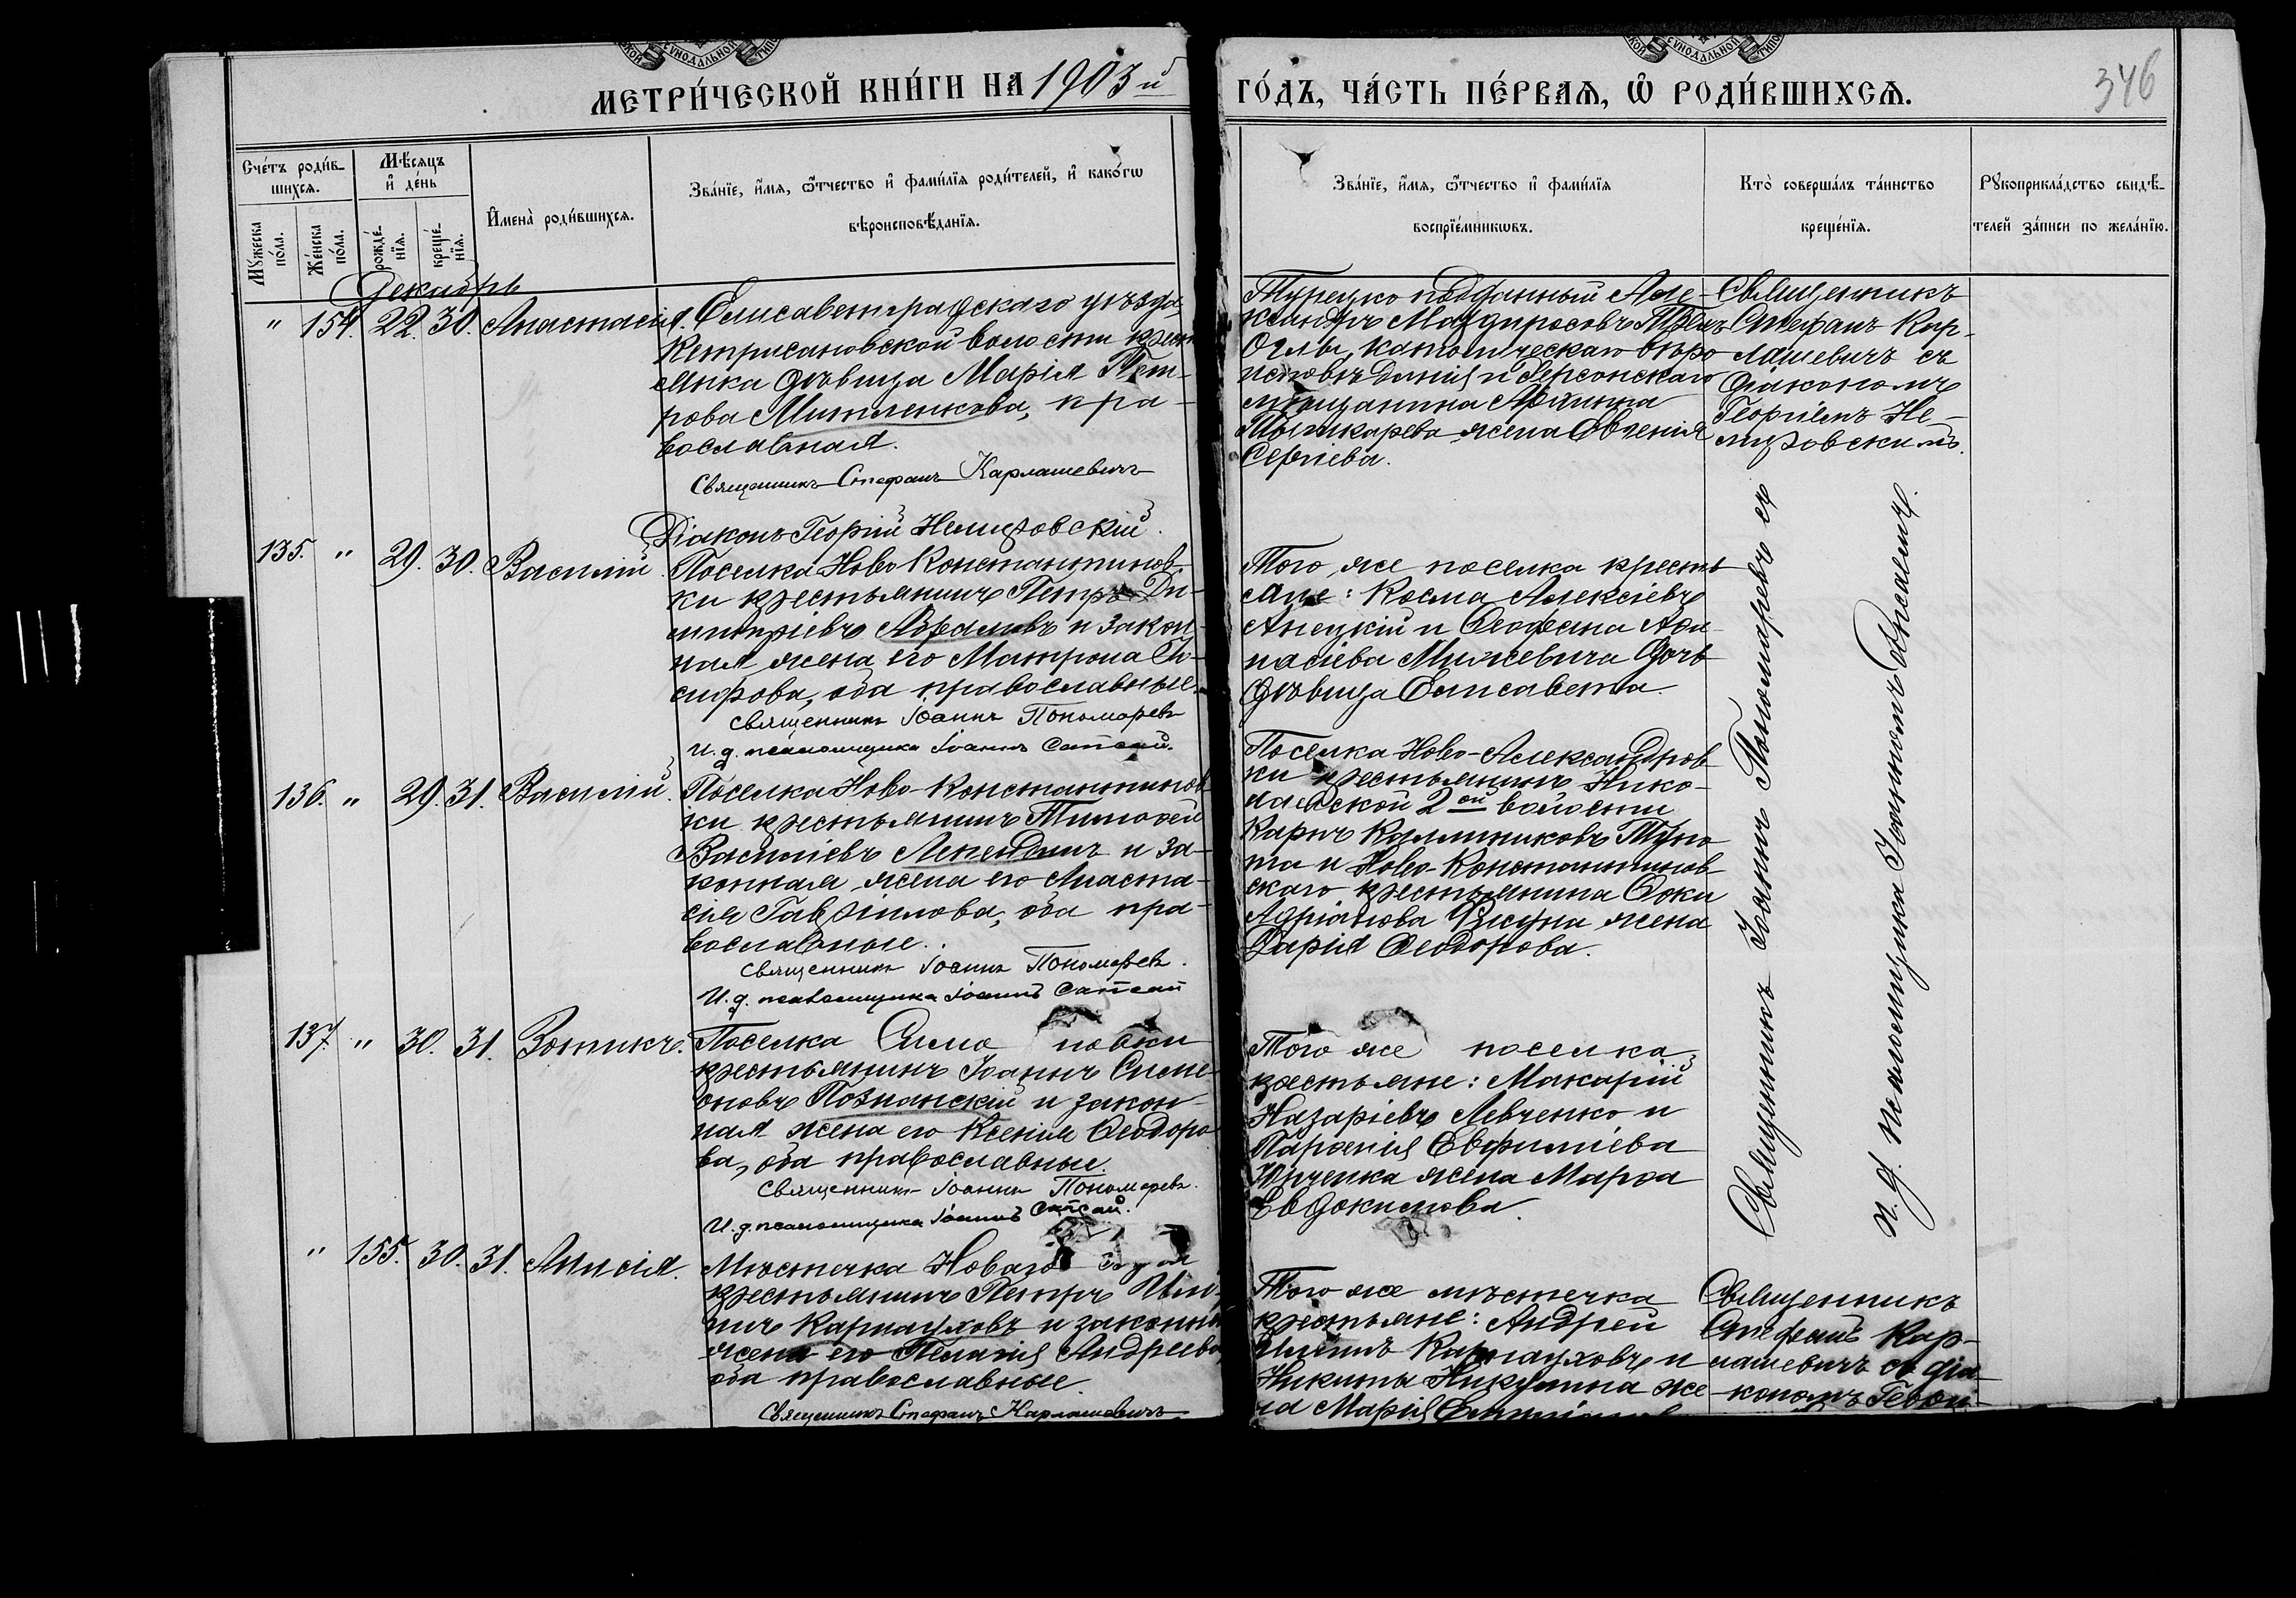 МЕТРИ́ЧЕСКОЙ КНИ́ГИ НА 1903 й
ГО́ДЪ, ЧА́СТЬ ПЕ́РВАѦ, Ѡ РОДИ́ВШИХСѦ.
346
Сче́тъ роди́в-
шихсѧ.
Мѣ́сѧцъ
и де́нь
Мꙋжеска
по́ла.
Же́нска
по́ла.
рожде́-
нїѧ.
креще́-
нїѧ.
Имена̀ роди́вшихсѧ.
Зва́нїе, и́мѧ, ѻ́тчество и фами́лїѧ роди́телей, и како́гѡ
вѣроисповѣ́данїѧ.
Зва́нїе, и́мѧ, ѻ́тчество и фами́лїѧ
воспрїе́мникѡвъ.
Кто̀ соверша́лъ та́инство
креще́нїѧ.
Рꙋкоприкла́дство свидѣ́-
телей за́писи по жела́нїю.
Декабрь
" 154. 22. 30. Анастасія.
Елисаветградскаго уѣзда
волости крест
янка дѣвица Марія Пет-
рова Митленкова, пра-
вославная.
Священникъ Стефанъ Карлашевичъ
Діаконъ Георгій Немировскій.
Турецко подданный Але-
ксандръ
Оглы, католическаго вѣро
исповѣданія и Херсонскаго
мѣщанина
жена Евгенія
Сергіева.
Священникъ
Стефанъ Кар-
лашевичъ съ
діакономъ
Георгіемъ Не-
мировскимъ.
135. " 29. 30. Василій.
Поселка Ново Константинов-
ки крестьянинъ Петръ Ди-
митріевъ Абрамовъ и закон-
ная жена его Матрона
сифова, оба православные.
священникъ Іоаннъ Пономаревъ
И. д. псаломщика Іоаннъ Сапсай.
Того же поселка кресть
яне: Косма Алексіевъ
и Ѳеофана Аѳа-
насіева Минжевича дочь
дѣвица Елисавета.
Священникъ Іоаннъ Пономаревъ съ
и. д. псаломщика Іоанномъ Сапсаемъ.
136. " 29. 31. Василій.
Поселка Ново-Константинов
ки крестьянинъ Тимоѳей
Василіевъ Лепендинъ и за-
конная жена его Анаста-
сія Гавріилова, оба пра-
вославные.
священникъ Іоаннъ Пономаревъ.
И. д. псаломщика Іоаннъ Сапсай
Поселка Ново-Александров
ки крестьянинъ Нико-
лаевской 2ой волости
Карпъ Каллиниковъ Туно
та и Ново-Константинов
скаго крестьянина Ѳоки
Адріанова жена
Дарія Ѳеодорова.
137. " 30. 31. Зотикъ.
Поселка Симо новки
крестьянинъ Іоаннъ Симе-
оновъ Познанскій и закон
ная жена его Ксенія Ѳеодоро
ва, оба православные.
священникъ Іоаннъ Пономаревъ.
И. д. псаломщика Іоаннъ Сапсай.
Того же поселка
крестьяне: Макарій
Назаріевъ Левченко и
Евфиміева
Юрченка жена Марѳа
Евдокимова.
" 155. 30. 31. Анисія.
Мѣстечка Новаго Буга
крестьянинъ Петръ Иль
инъ Карнауховъ и законная
жена его Пелагія Андреева,
оба православные.
Священникъ Стефанъ Карлашевичъ
Того же мѣстечка
крестьяне: Андрей
Ильинъ Карнауховъ и
Никиты Никулина же-
на Марія
Священникъ
Стефанъ Кар-
лашевичъ съ діа-
кономъ Георгі-